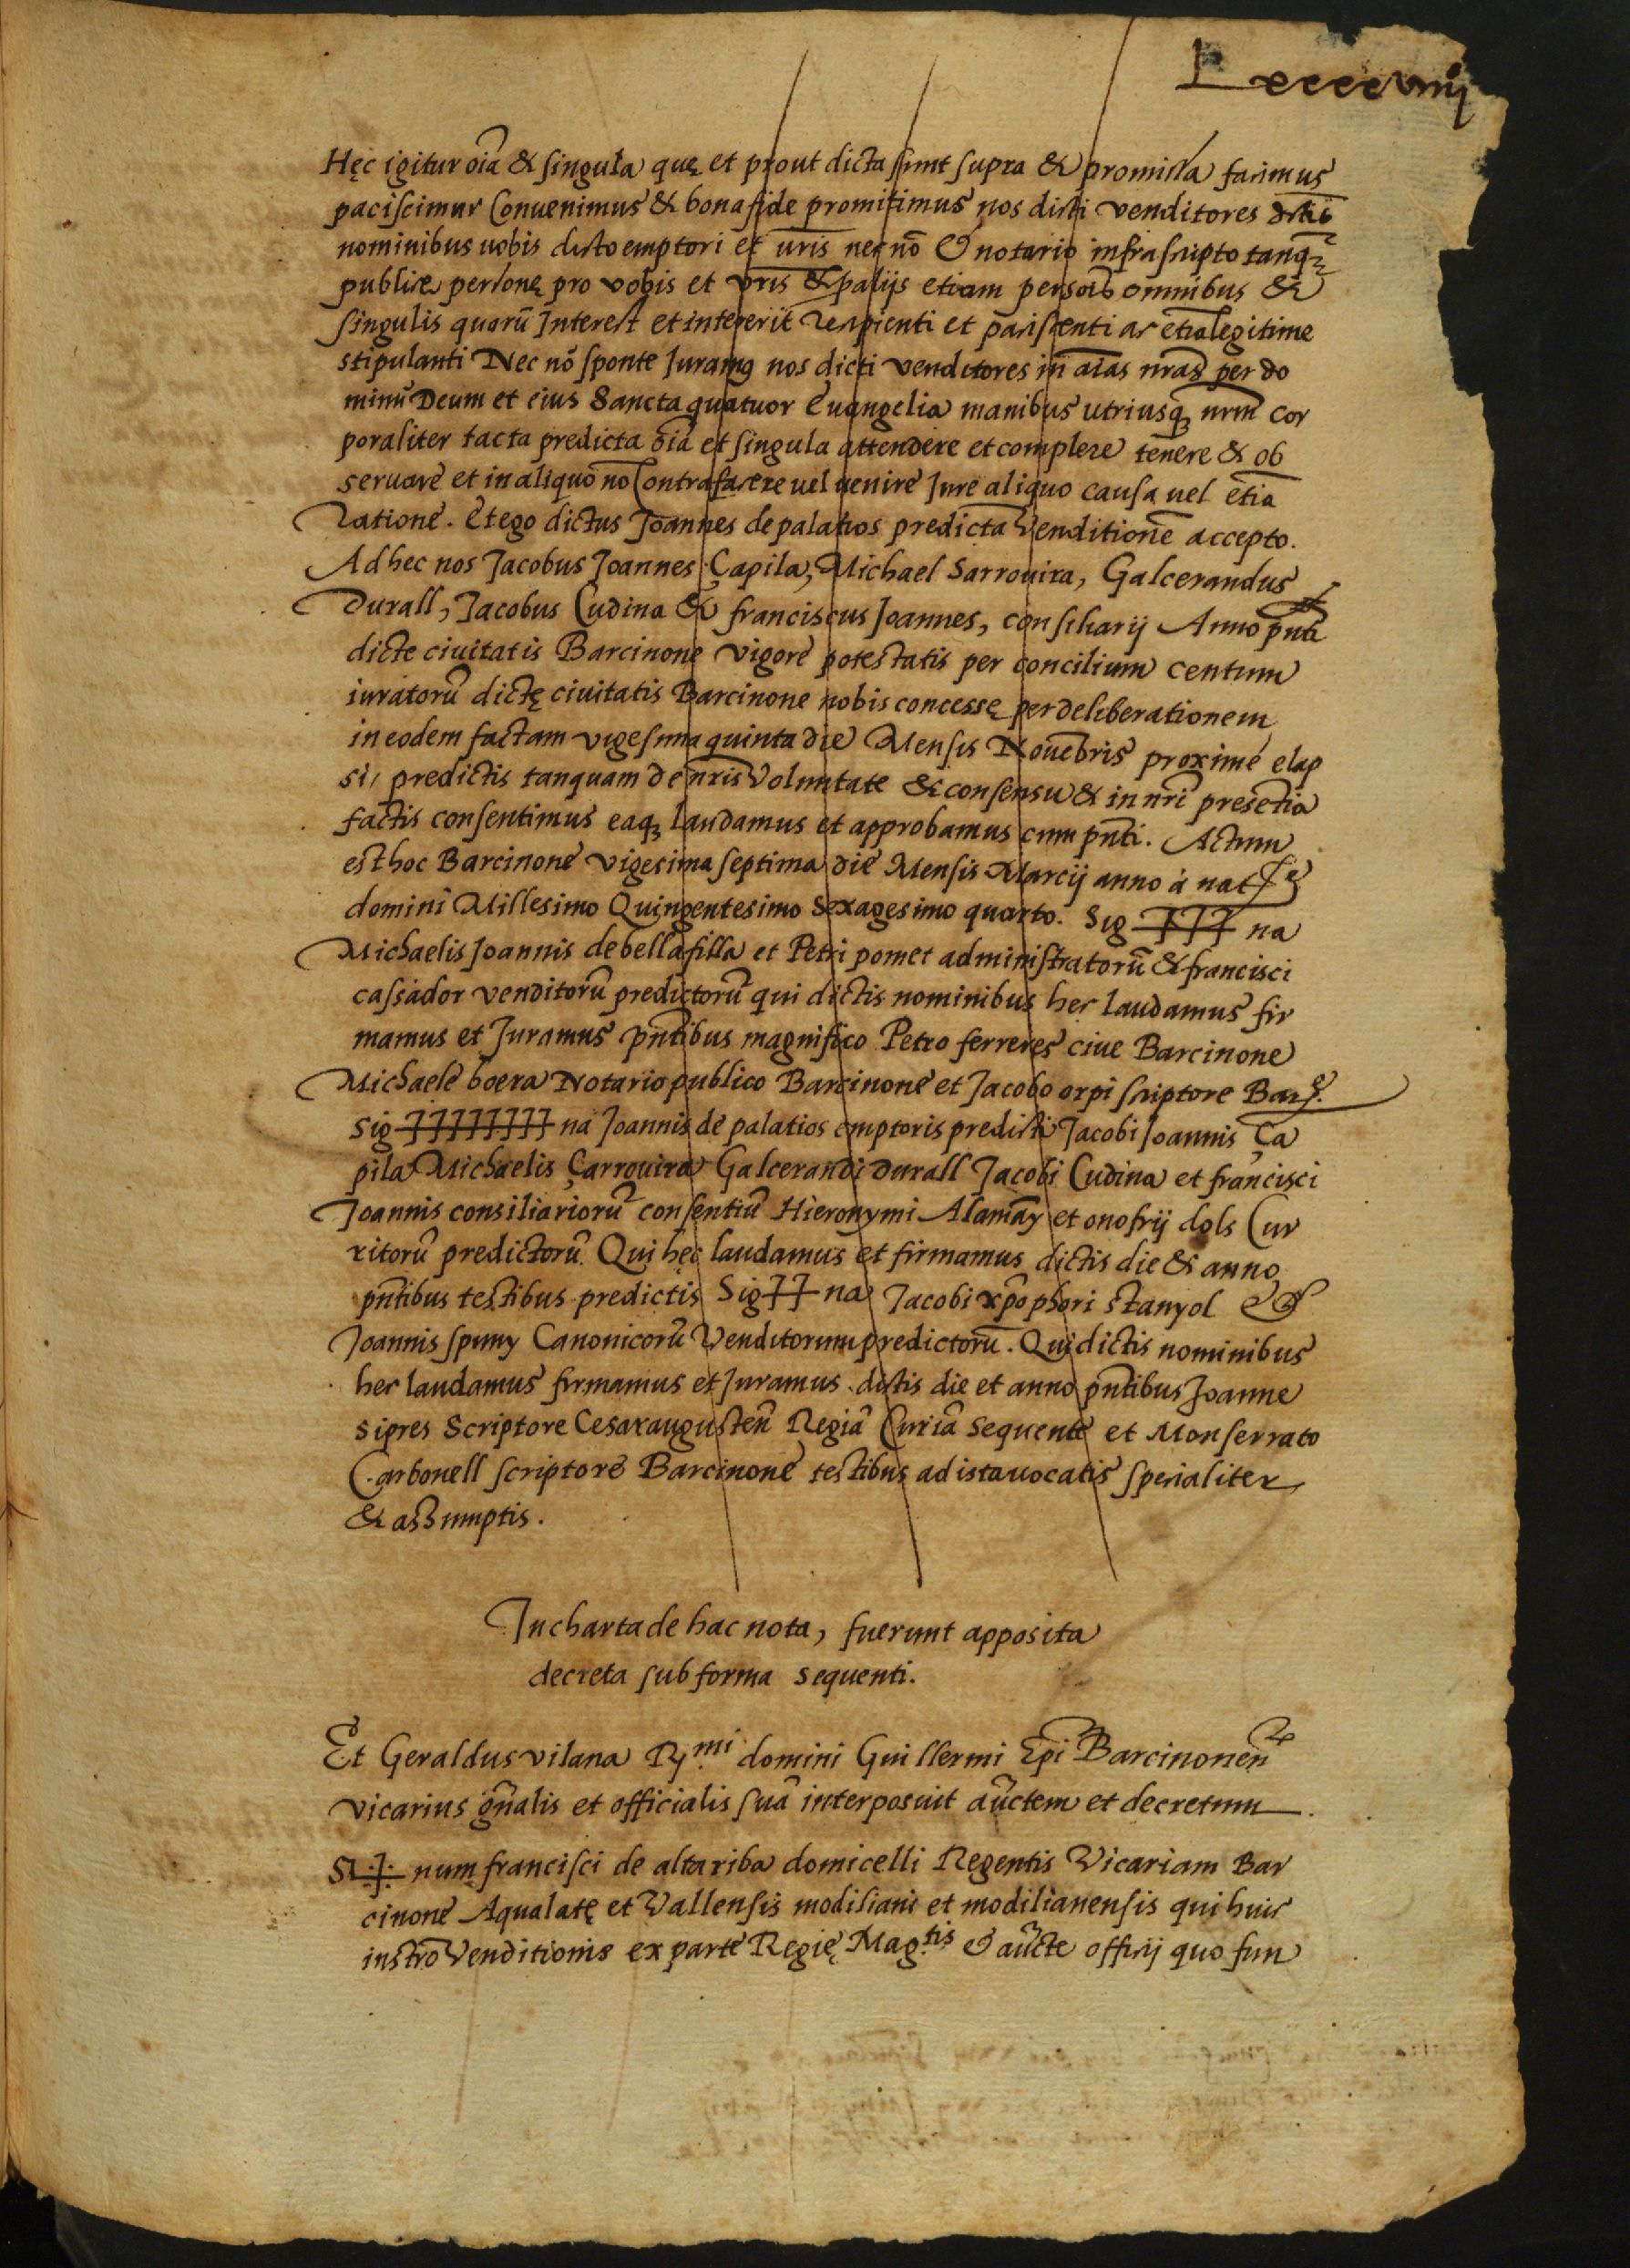 Lxxxxviiij
Hęc igitur oı̃a & singula quę et prout dicta sunt supra & promissa facimus
paciscimur Conuenimus & bona fide promittimus nos dicti venditores dictis
nominibus uobis dicto emptori et vr̃is necnõ & notario infrascripto tanq̃
publice personę pro vobis et vr̃is & alijs etiam persoĩs omnibus &
singulis quorũ Interest et intererit recipienti et paciscenti ac etiã legitime
stipulanti Nec nõ sponte Juramꝰ nos dicti venditores in aı̃as nr̃as per do
minũ Deum et eius Sancta quatuor Euangelia manibus utriusqꝫ nr̃m cor
poraliter tacta predicta oı̃a et singula attendere et complere tenere & ob
seruare et in aliquo nõ Contrafacere uel uenire Jure aliquo causa uel etiã
Ratione. Et ego dictus Joannes de palatios predictã Venditionẽ accepto.
Ad hec nos Jacobus Joannes Çapila, Michael Sarrouira, Galcerandus
Durall, Jacobus Cudina & franciscus Joannes, consiliarij Anno pñti
dicte ciuitatis Barcinone vigore potestatis per concilium centum
iuratorũ dictę ciuitatis Barcinone nobis concessę per deliberationem
in eodem factam vigesima quinta die Mensis Nouẽbris proximé elap
si, predictis tanquam de nr̃is Voluntate & consensu & in nr̃i presẽtia
factis consentimus eaqꝫ laudamus et approbamus cum pñti. Actum
est hoc Barcinone vigesima septima die Mensis Marcij anno à natᵉ
domini Millesimo Quingentesimo Sexagesimo quarto. Sig╪╪╪na
Michaelis Joannis de bellafilla et Petri pomet administratorũ & francisci
cassador venditorũ predictorũ qui dictis nominibus hec laudamus fir
mamus et Juramus pñtibus magnifico Petro ferreres ciue Barcinone
Michaele boera Notario publico Barcinone et Jacobo orpi scriptore Barᵉ.
Sig╪╪╪╪╪╪╪╪na Joannis de palatios emptoris predicti Jacobi Joannis Ça
pila Michaelis Çarrouira Galcerandi durall Jacobi Cudina et francisci
Joannis consiliariorũ consentiũ Hieronymi Alamãy et onofrij dols Cur
ritorũ predictorũ. Qui hęc laudamus et firmamus dictis die & anno
pñtibus testibus predictis Sig╪╪na Jacobi xp̃ophori stanyol &
Joannis spuny Canonicorũ Venditorum predictorũ. Qui dictis nominibus
hec laudamus firmamus et Juramus dictis die et anno pñtibus Joanne
sipres Scriptore Cesaraugusteñ Regiã Curiã Sequente et Monserrato
Carbonell scriptore Barcinone testibus ad ista uocatis specialiter
& assumptis.
In charta de hac nota, fuerunt apposita
decreta sub forma sequenti.
Et Geraldus vilana R.ᵐⁱ domini Guillermi Epĩ Barcinoneñ
vicarius gñalis et officialis suã interposuit auctem̃ et decretum
Si╪num francisci de altariba domicelli Regentis Vicariam Bar
cinone Aqualatę et Vallensis modiliani et modilianensis qui huic
instrõ Venditionis ex parte Regię Mag.ᵗⁱˢ & aucte officij quo fun